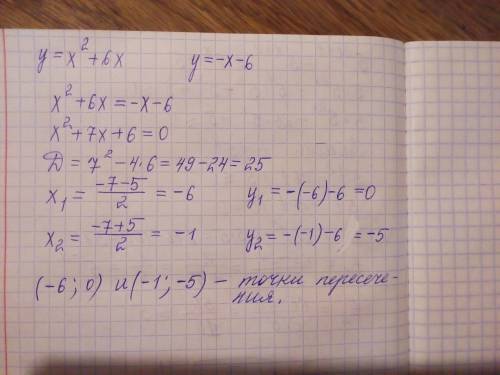 y = x² + 6x y = -x - 6
x² + 6x = -x - 6
x² + 7x + 6 = 0
D = 7² - 4·6 = 49 - 24 = 25
x₁ = (-7-5)/2 = -6 y₁ = -(-6) - 6 = 0
x₂ = (-7+5)/2 = -1 y₂ = -(-1) - 6 = -5
(-6; 0) и (-1; -5) - точки пересече-
ния.